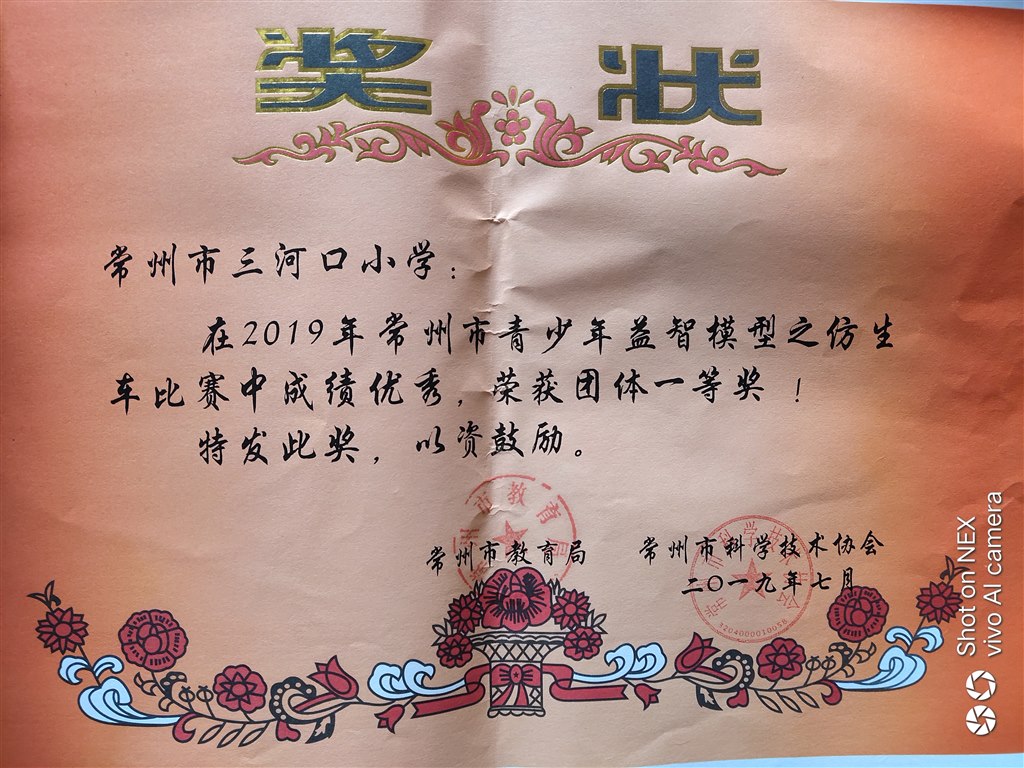 奖状
常州市三河口小学：
在2019年常州市青少年益智模型之仿生
车比赛中成绩优秀，荣获团体一等奖！
特发此奖，以资鼓励。
常州市教育局 常州市科学技术协会
二〇一九年七月
Shot on NEX
vivo AI camera